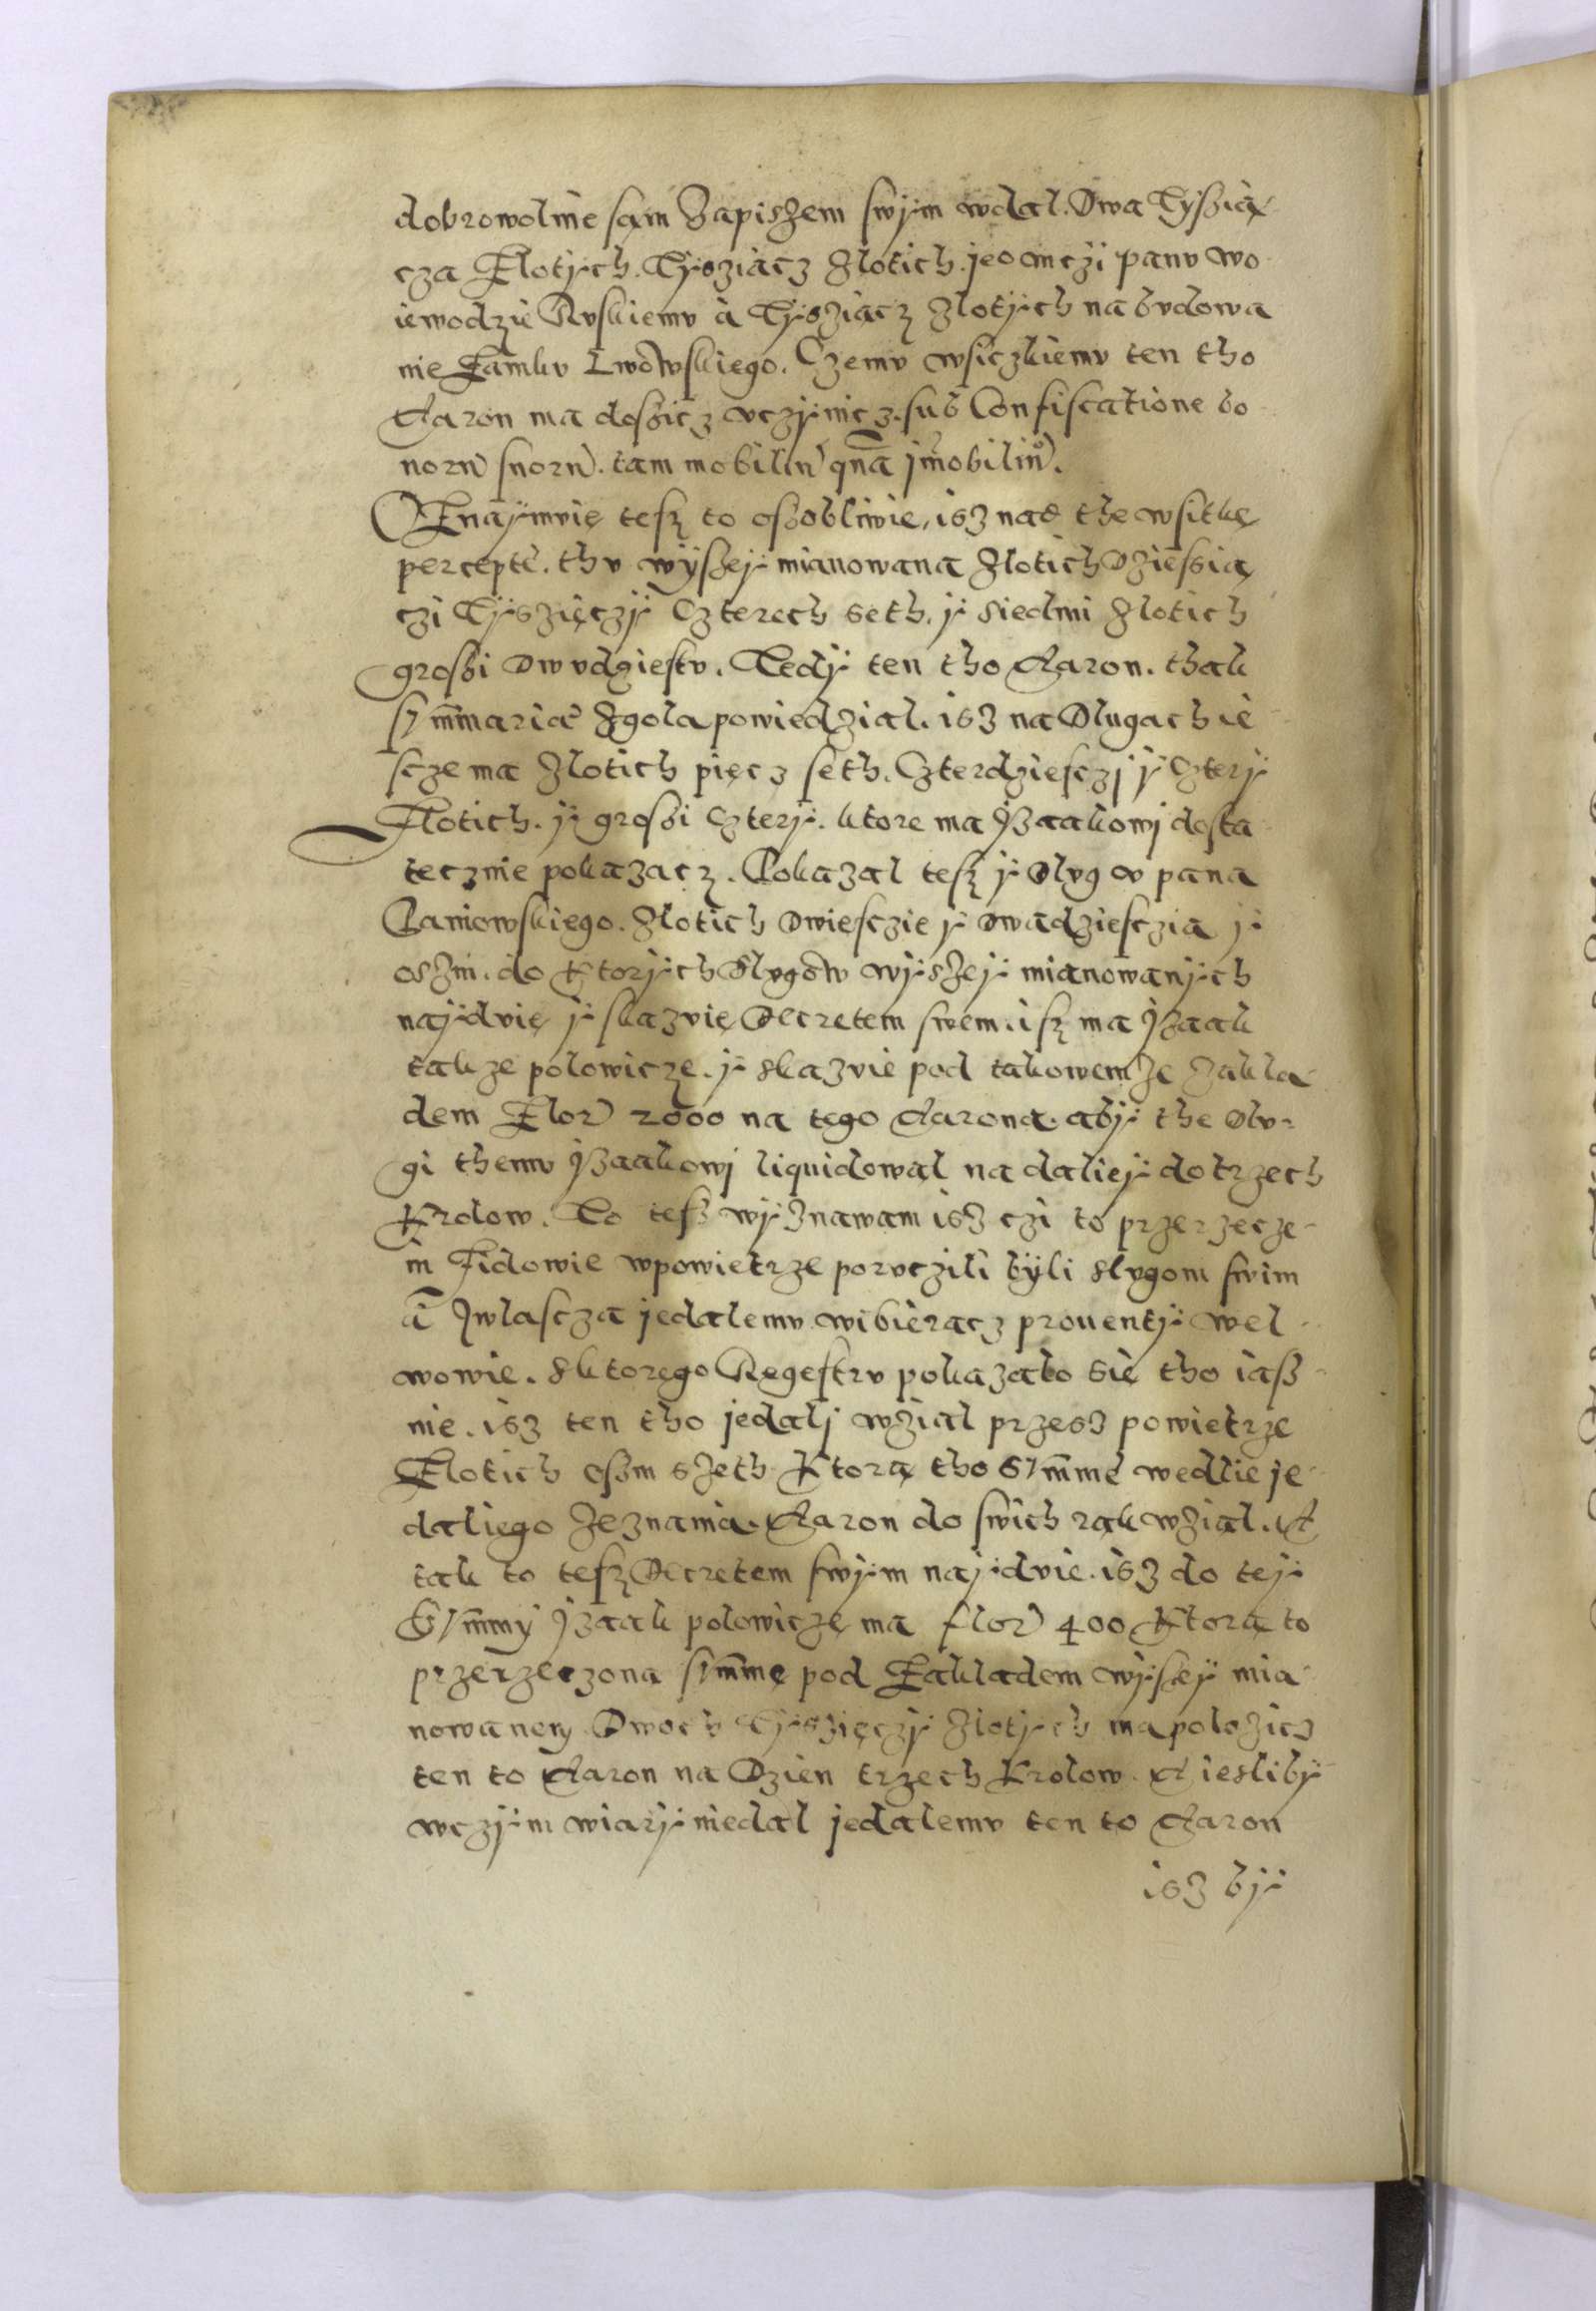 dobrowolnie sam Zapiszem swÿm wdal. Dwa Tyssią
cza Zlotÿch. Tÿsziącz Zlotich jeo mczi panv wo
iewodzie Rvskiemv à Tÿsziącz Zlotÿch na bvdowa
nie Zamkv Lwowskiego. Czemv wsiczkiemv ten tho
Aaron ma dosSicz vczÿnicz. sub Confiscatione bo
norū suorū. tam mobiliū quā jmobiliū.
Znaÿmvię tesz to ossobliwie, isz nad the wsitkę
perceptę. thv wÿszeÿ mianowaną Zlotich Dziessią
czi Tÿszięczÿ Czterech seth. ÿ siedmi Zlotich
grossi Dwvdziestv. Tedÿ ten tho Aaron. thak
sūmarie Zgola powiedzial. isz na Dlugach ie
scze ma Zlotich pięcz seth. Czterdziesczj ÿ Czterÿ
Zlotich. ÿ grossi Czterÿ. ktore ma Jzaakowj dosta
tecznie pokazacz. Pokazal tesz ÿ Dlvg v pana
Paniowskiego. Zlotich Dwiesczie ÿ Dwadziesczia ÿ
oszm. do Ktorÿch Dlvgow wÿszeÿ mianowanÿch
naÿdvię ÿ skazvię Decretem swem. isz ma Jzaak
takze polowicze. ÿ skazvie pod takowem ze zakla
dem Flor 2000 na tego Aarona. abÿ the Dlv-
gi themv Jzaakowj liquidowal na dalieÿ do trzech
Krolow. To tesz wÿznawam isz czi to przerzecze-
ni Zidowie wpowietrze porvczili bÿli slvgom swim
ā zwlascza jedalemv wibieracz prouentÿ wel
wowie. sktorego Regestrv pokazalo się tho iass
nie. isz ten tho jedalj wzial przesz powietrze
Zlotich ossm szeth Ktorą tho Sūmmę wedlie je
daliego zeznania. Aaron do swich rąk wziąl. A
tak to tesz Decretem swÿm naÿdvie. isz do teÿ
Sūmmy Jzaak polowiczę ma flor 400 Ktorą to
przerzeczoną sūmmę pod Zakladem wÿseÿ mia
nowanem Dwoch Tÿszięczÿ Zlotÿch ma polozicz
ten to Aaron na Dzien trzech Krolow. A ieslibÿ
wczÿm wiarÿ niedal jedalemv ten to Aaron
isz bÿ